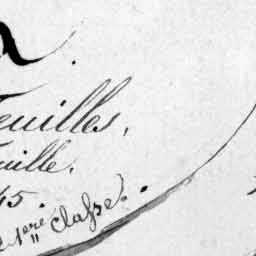 feuilles,
uille.
45
1ere classe.